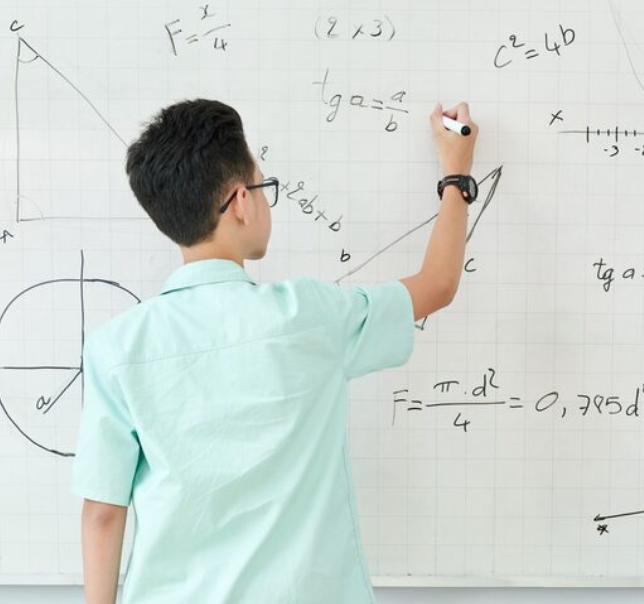 C
F = x/4
(2 x 3)
c² = 4b
tg a = a/b
x
-3 -2
2
x 2ab x b
b
c
tg a
a
F = π . d²/4 = 0,785d²
x